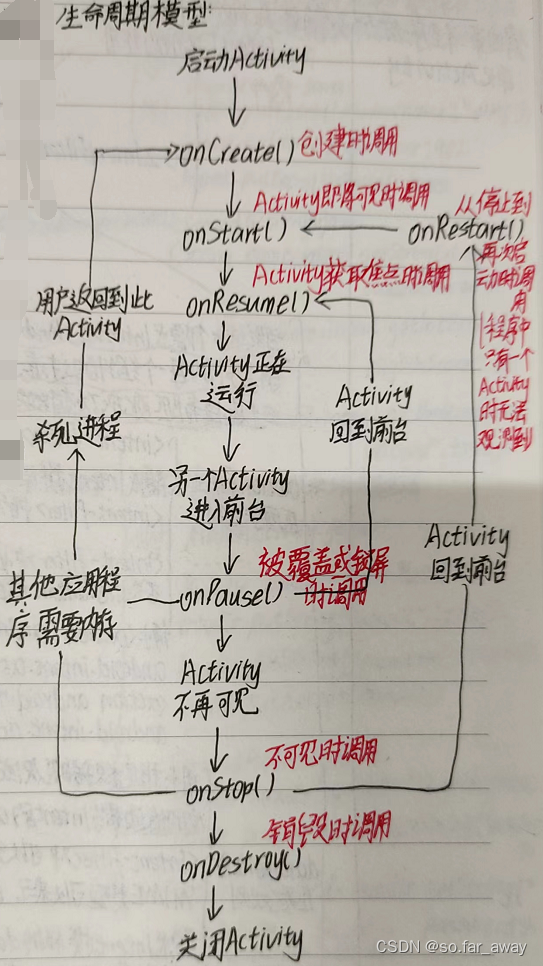 生命周期模型:
启动Activity
onCreate()
创建时调用
Activity即将可见时调用
onStart()
从停止到
onRestart()
再次启
动时调用
程序中
只有一个
Activity
时无法
观测到
Activity获取焦点时调用
onResume()
用户返回到此
Activity
Activity正在
运行
Activity
回到前台
杀死进程
另一个Activity
进入前台
Activity
回到前台
被覆盖或锁屏
时调用
其他应用程
序需要内存
onPause()
Activity
不再可见
不可见时调用
onStop()
销毁时调用
onDestroy()
关闭Activity
CSDN @so.far_away